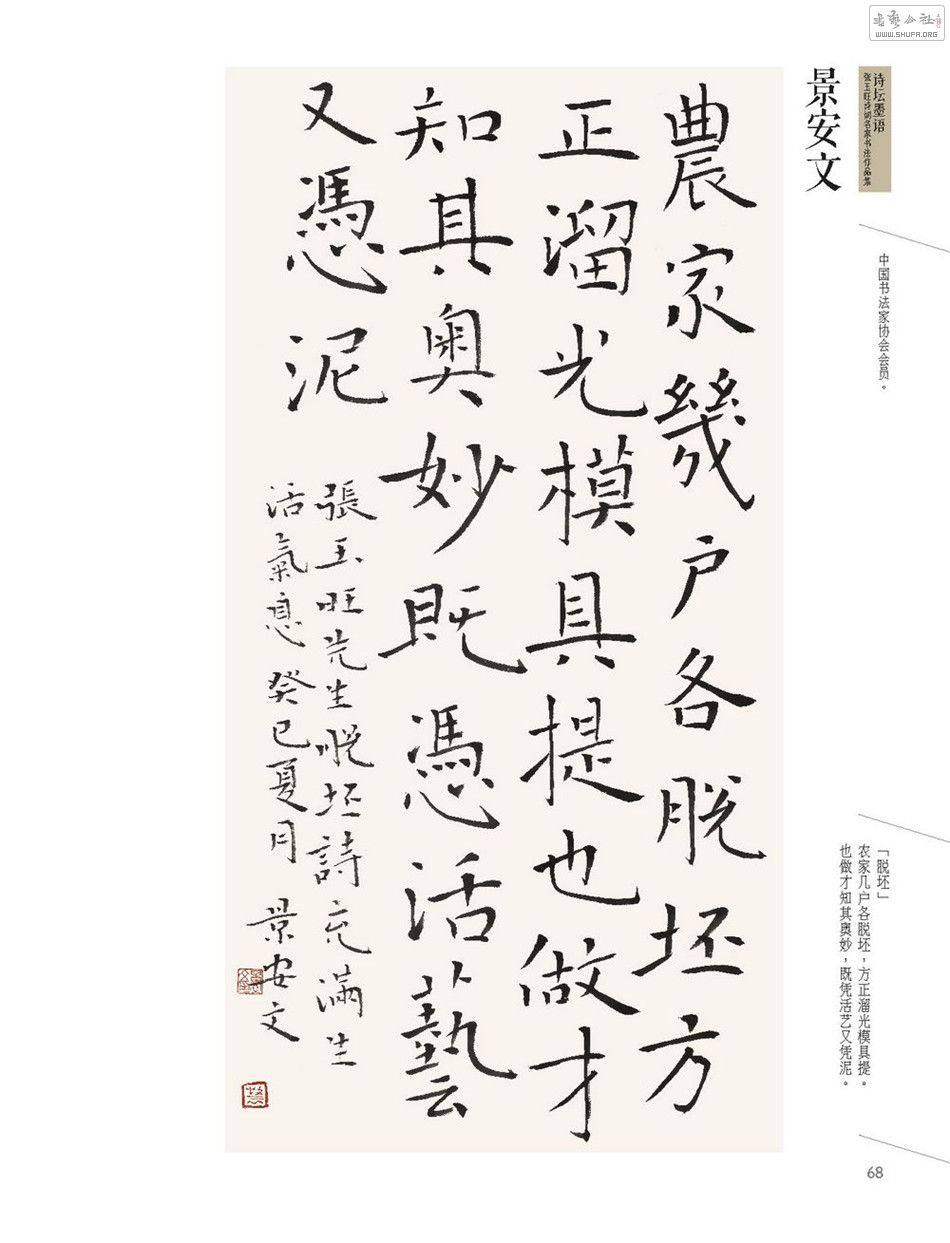 WWW.SHUFA.ORG
诗坛墨语
张玉旺诗词名家书法作品集
景安文
中国书法家协会会员。
農家幾户各脱坯方
正溜光模具提也做才
知其奥妙既憑活藝
又憑泥
張玉旺先生脱坯詩充滿生
活氣息癸巳夏月 景安文
「脱坯」
农家几户各脱坯，方正溜光模具提。
也做才知其奥妙，既凭活艺又凭泥。
68